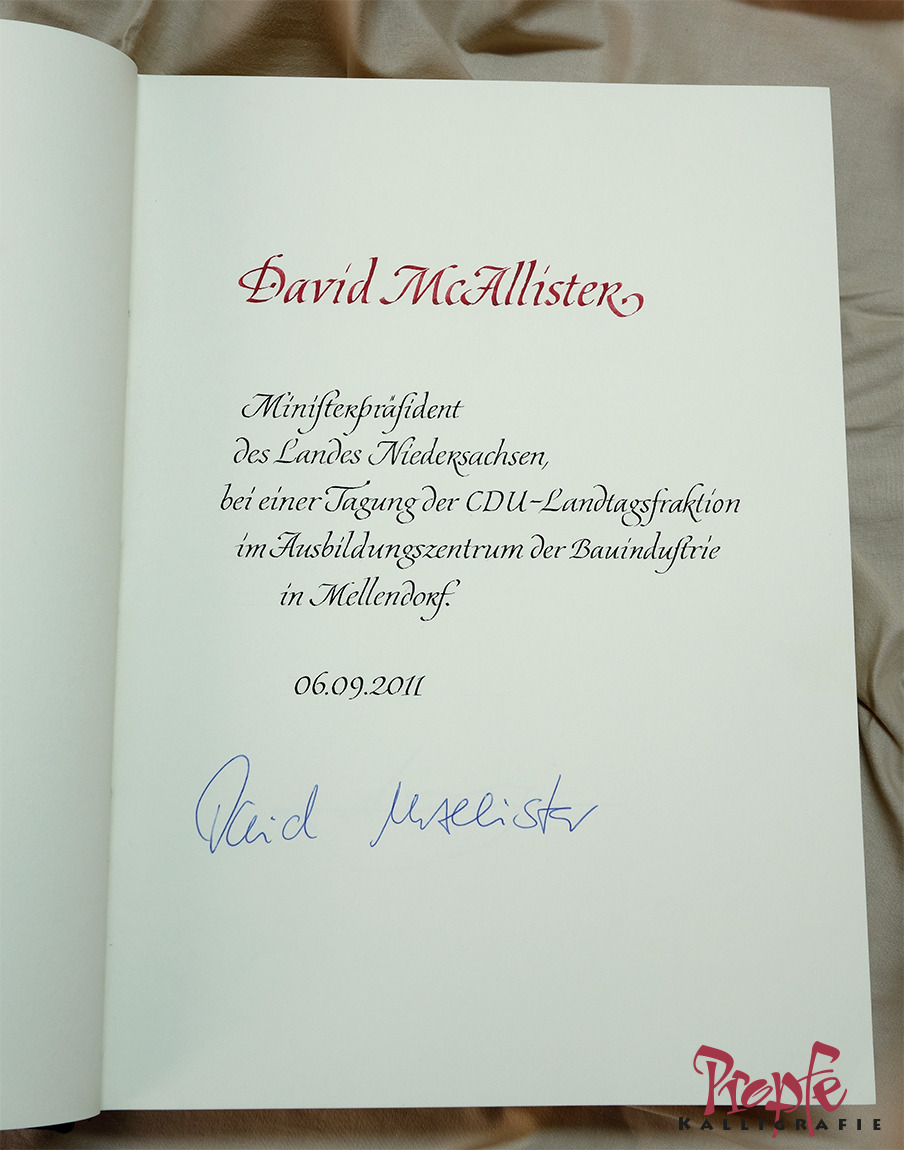 David McAllister
Miniſterpräſident
des Landes Niedersachsen,
bei einer Tagung der CDU-Landtagsfraktion
im Ausbildungszentrum der Bauinduſtrie
in Mellendorf.
06.09.2011
David McAllister
Propfe
KALLIGRAFIE